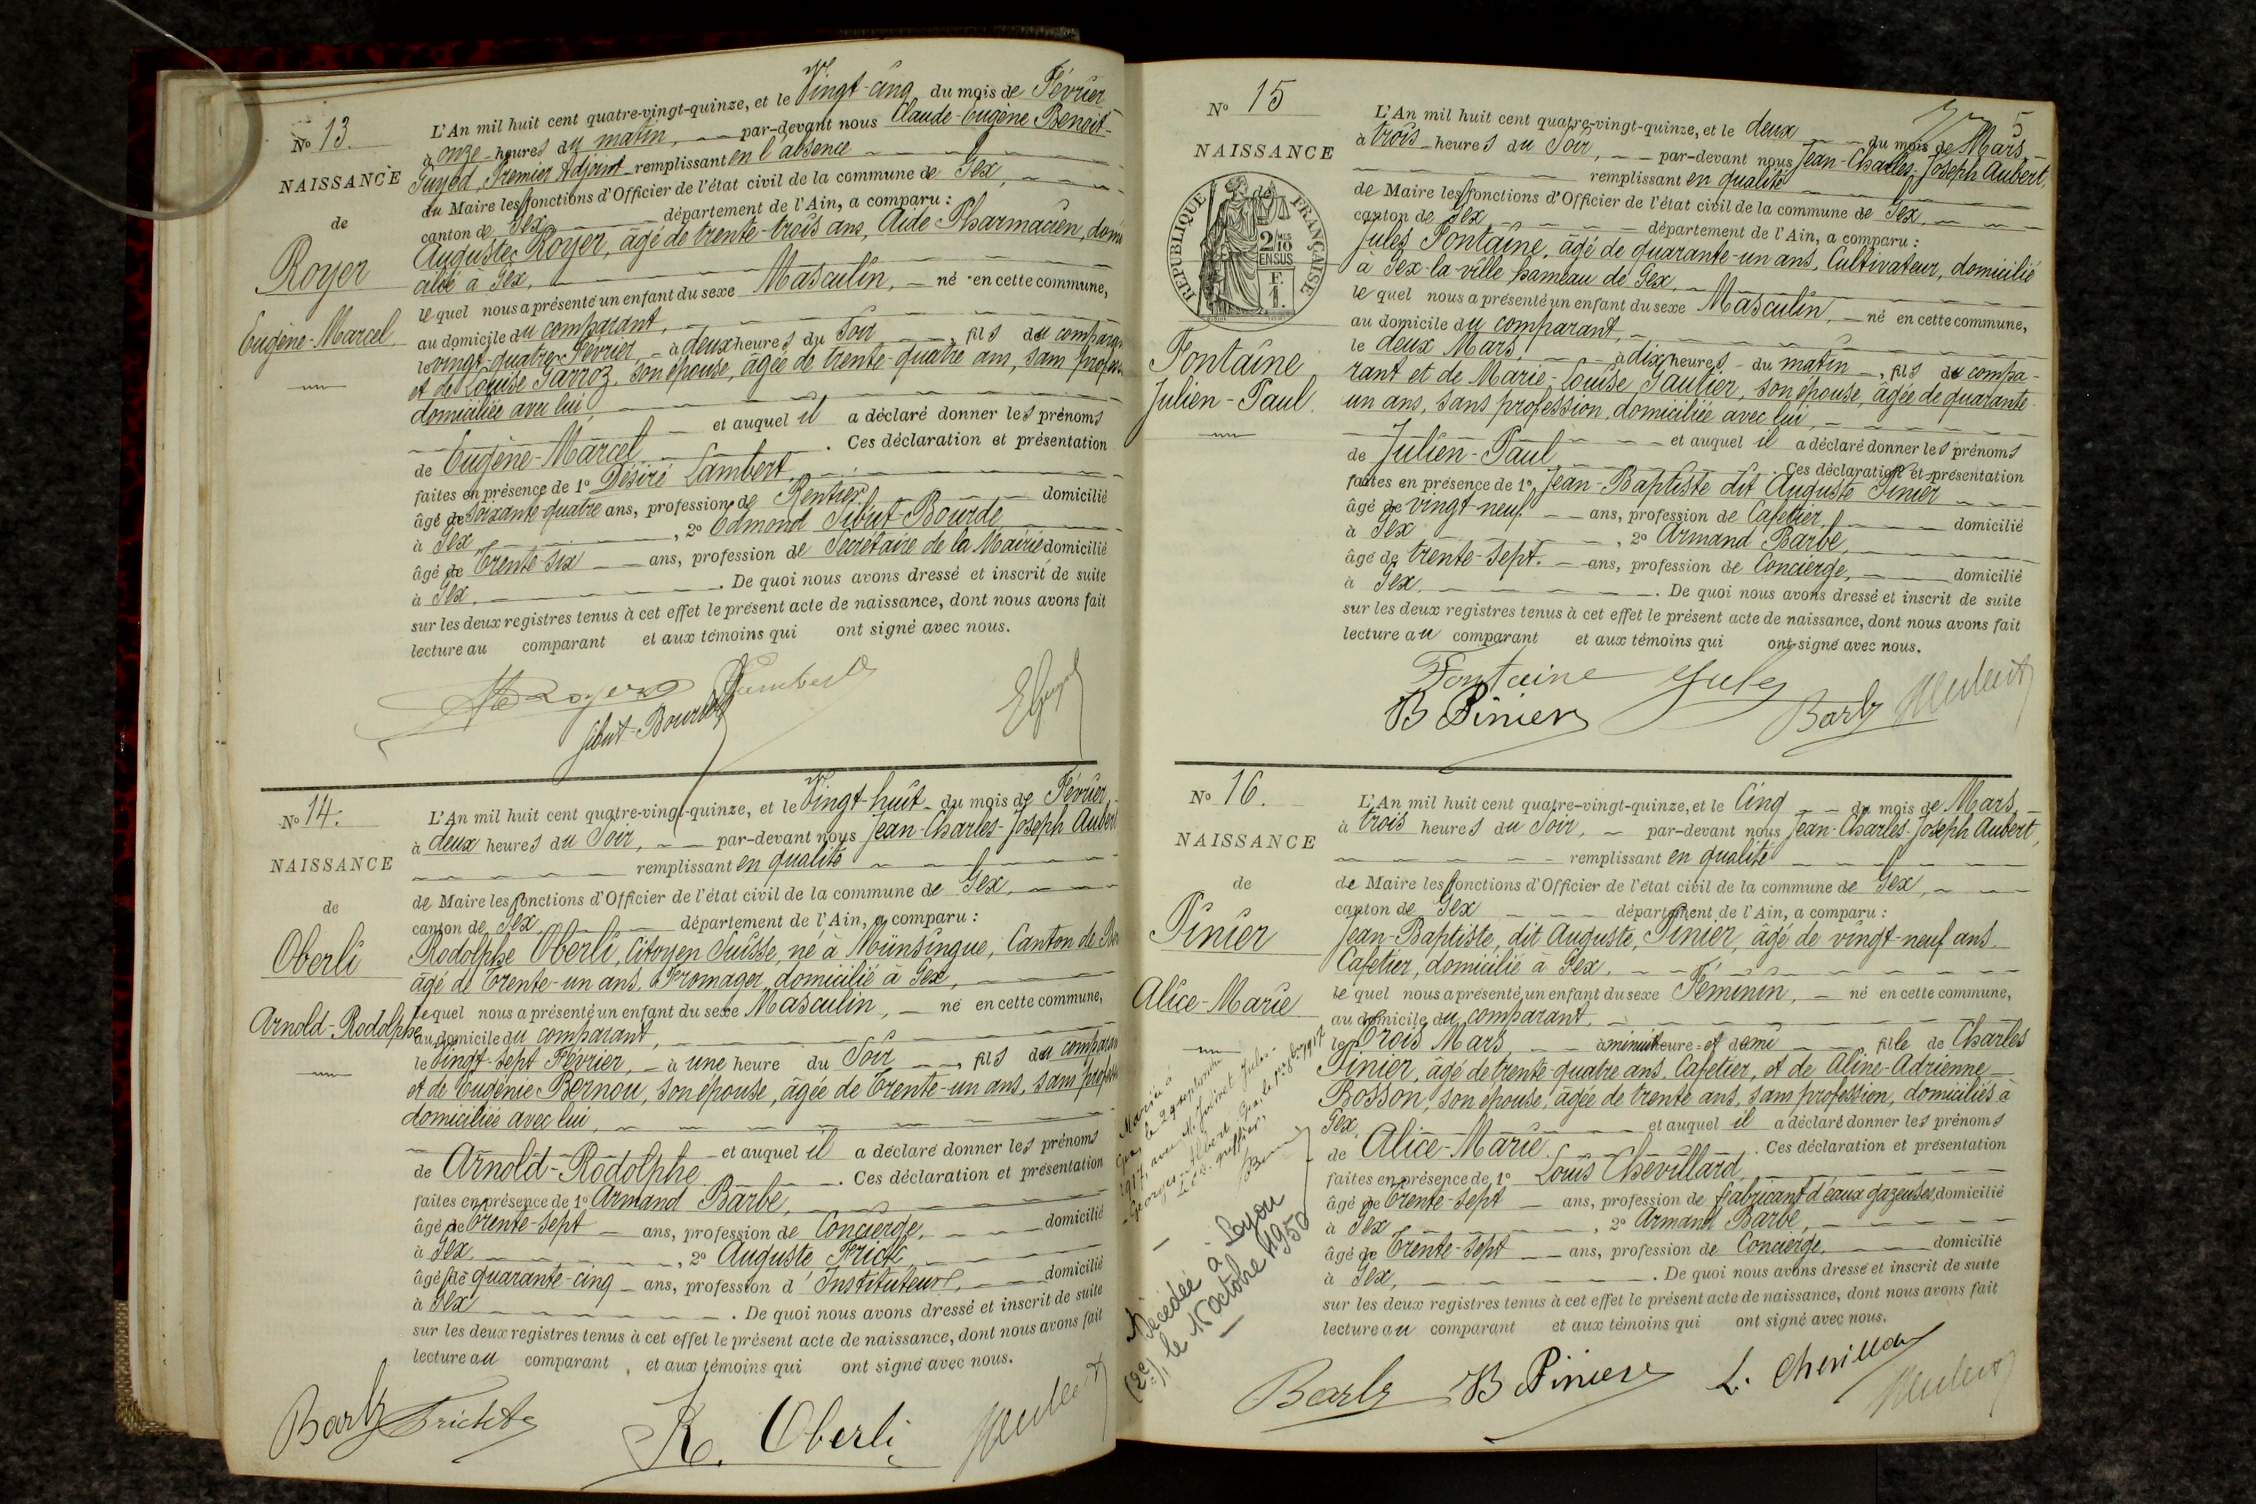 No 13.
NAISSANCE
de
Royer
Eugène-Marcel
L'An mil huit cent quatre-vingt-quinze, et le Vingt-cinq du mois de Février
à onze heures du matin, par-devant nous Claude-Eugène Benoit-
Guyed, Premier Adjoint remplissant en l'absence
du Maire les fonctions d'Officier de l'état civil de la commune de Gex,
canton de Gex département de l'Ain, a comparu :
Auguste Royer, âgé de trente-trois ans, Aide Pharmacien, domi
cilié à Gex,
le quel nous a présenté un enfant du sexe Masculin, né en cette commune,
au domicile du comparant,
le vingt-quatre Février, à deux heures du Soir, fils du comparant
et de Louise Garroz, son épouse, âgée de trente-quatre ans, sans profession
domiciliée avec lui,
et auquel il a déclaré donner les prénoms
de Eugène-Marcel. Ces déclaration et présentation
faites en présence de 1o Désiré Lambert,
âgé de Soixante-quatre ans, profession de Rentier domicilié
à Gex, 2o Edmond Sibut-Bourde
âgé de Trente-six ans, profession de Secrétaire de la Mairie domicilié
à Gex. De quoi nous avons dressé et inscrit de suite
sur les deux registres tenus à cet effet le présent acte de naissance, dont nous avons fait
lecture au comparant et aux témoins qui ont signé avec nous.
Royer Lambert
Sibut-Bourde
No 14.
NAISSANCE
de
Oberli
Arnold-Rodolphe
L'An mil huit cent quatre-vingt-quinze, et le Vingt-huit du mois de Février
à deux heures du Soir, par-devant nous Jean-Charles-Joseph Aubert
remplissant en qualité
de Maire les fonctions d'Officier de l'état civil de la commune de Gex,
canton de Gex département de l'Ain, a comparu :
Rodolphe Oberli, Citoyen Suisse, né à Münsingue, Canton de Be
âgé de Trente-un ans, Fromager domicilié à Gex,
le quel nous a présenté un enfant du sexe Masculin, né en cette commune,
au domicile du comparant,
le Vingt-sept Février, à une heure du Soir, fils du comparant
et de Eugénie Bernou, son épouse, âgée de Trente-un ans, sans profession
domiciliée avec lui,
et auquel il a déclaré donner les prénoms
de Arnold-Rodolphe. Ces déclaration et présentation
faites en présence de 1o Armand Barbe,
âgé de Trente-sept ans, profession de Concierge, domicilié
à Gex, 2o Auguste Frick
âgé de quarante-cinq ans, profession d'Instituteur, domicilié
à Gex. De quoi nous avons dressé et inscrit de suite
sur les deux registres tenus à cet effet le présent acte de naissance, dont nous avons fait
lecture au comparant, et aux témoins qui ont signé avec nous.
R. Oberli
5
No 15
NAISSANCE
RÉPUBLIQUE FRANÇAISE
2/10
EN SUS
F.
1.
Fontaine
Julien-Paul.
L'An mil huit cent quatre-vingt-quinze, et le deux du mois de Mars
à trois heures du Soir, par-devant nous Jean-Charles-Joseph Aubert,
remplissant en qualité
de Maire les fonctions d'Officier de l'état civil de la commune de Gex,
canton de Gex département de l'Ain, a comparu :
Jules Fontaine, âgé de quarante-un ans, Cultivateur, domicilié
à Gex-la-ville hameau de Gex,
le quel nous a présenté un enfant du sexe Masculin, né en cette commune,
au domicile du comparant,
le deux Mars, à dix heures du matin, fils du compa-
rant et de Marie-Louise Gaulier, son épouse, âgée de quarante-
un ans, sans profession, domiciliée avec lui,
et auquel il a déclaré donner les prénoms
de Julien-Paul. Ces déclaration et présentation
faites en présence de 1o Jean-Baptiste dit Auguste Pinier
âgé de vingt-neuf ans, profession de Cafetier, domicilié
à Gex, 2o Armand Barbe,
âgé de trente-sept ans, profession de Concierge, domicilié
à Gex. De quoi nous avons dressé et inscrit de suite
sur les deux registres tenus à cet effet le présent acte de naissance, dont nous avons fait
lecture au comparant et aux témoins qui ont signé avec nous.
Fontaine Jules
B Pinier Barbe
No 16.
NAISSANCE
de
Pinier
Alice-Marie
Mariée à
Gex le 29 septembre
1917, avec M. Julinet Jules-
Georges-Albert
Décédée à Loyon
le 15 octobre 1950
L'An mil huit cent quatre-vingt-quinze, et le Cinq du mois de Mars
à trois heures du Soir, par-devant nous Jean-Charles-Joseph Aubert,
remplissant en qualité
de Maire les fonctions d'Officier de l'état civil de la commune de Gex,
canton de Gex département de l'Ain, a comparu :
Jean-Baptiste, dit Auguste, Pinier, âgé de vingt-neuf ans
Cafetier, domicilié à Gex,
le quel nous a présenté un enfant du sexe Féminin, né en cette commune,
au domicile du comparant,
le Trois Mars à minuit heure et demi, fille de Charles
Pinier, âgé de trente-quatre ans, Cafetier, et de Aline-Adrienne
Bosson, son épouse, âgée de trente ans, sans profession, domiciliés à
Gex, et auquel il a déclaré donner les prénoms
de Alice-Marie. Ces déclaration et présentation
faites en présence de 1o Louis Chevillard,
âgé de Trente-sept ans, profession de fabricant d'eaux gazeuses domicilié
à Gex, 2o Armand Barbe,
âgé de Trente-sept ans, profession de Concierge, domicilié
à Gex. De quoi nous avons dressé et inscrit de suite
sur les deux registres tenus à cet effet le présent acte de naissance, dont nous avons fait
lecture au comparant et aux témoins qui ont signé avec nous.
Barbe B Pinier L. Chevillard